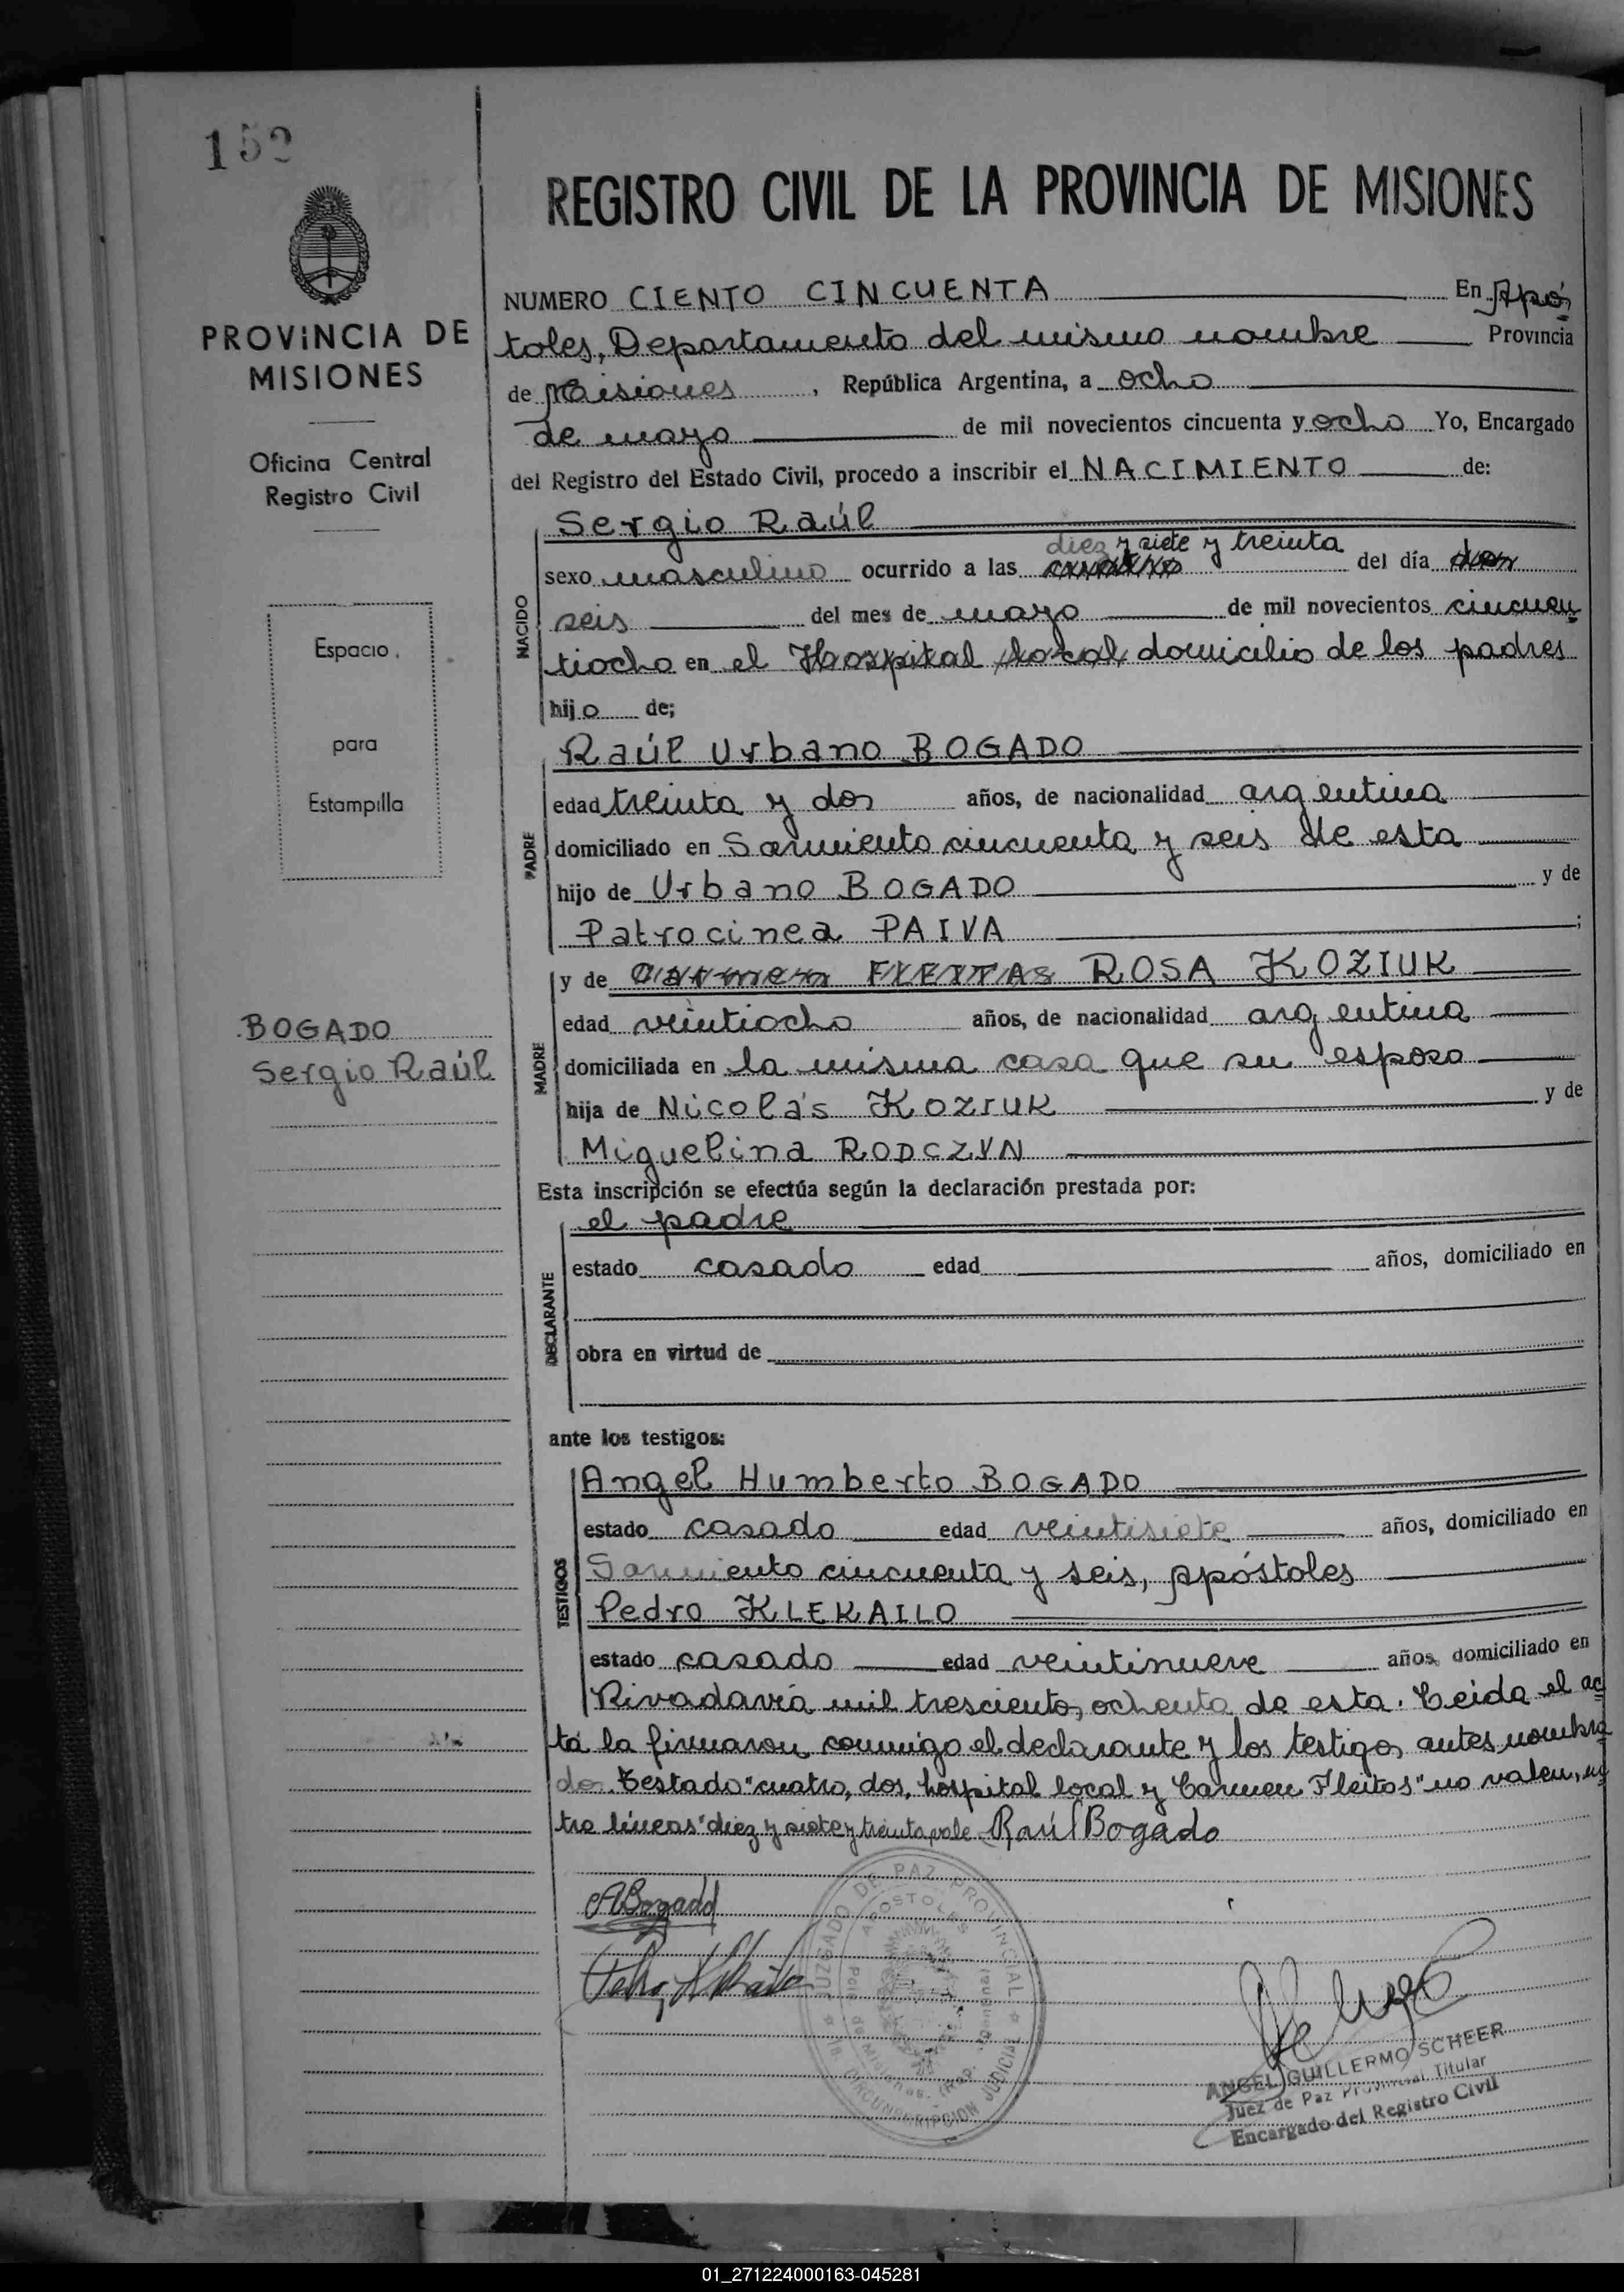 152
REGISTRO CIVIL DE LA PROVINCIA DE MISIONES
PROVINCIA DE
MISIONES
Oficina Central
Registro Civil
Espacio
para
Estampilla
BOGADO
Sergio Raúl
NUMERO CIENTO CINCUENTA En Após
toles, Departamento del mismo nombre Provincia
de Misiones, República Argentina, a ocho
de mayo de mil novecientos cincuenta y ocho Yo, Encargado
del Registro del Estado Civil, procedo a inscribir el NACIMIENTO de:
NACIDO
Sergio Raúl
diez y siete y treinta
sexo masculino ocurrido a las cuatro del día dos
seis del mes de mayo de mil novecientos cincuen
tiocho en el Hospital local domicilio de los padres
hijo de;
PADRE
Raúl Urbano BOGADO
edad treinta y dos años, de nacionalidad argentina
domiciliado en Sarmiento cincuenta y seis de esta
hijo de Urbano BOGADO y de
Patrocinea PAIVA;
MADRE
y de Carmen FLEITAS ROSA KOZIUK
edad veintiocho años, de nacionalidad argentina
domiciliada en la misma casa que su esposo
hija de Nicolás KOZIUK y de
Miguelina RODCZYN
Esta inscripción se efectúa según la declaración prestada por:
DECLARANTE
el padre
estado casado edad años, domiciliado en
obra en virtud de
ante los testigos:
TESTIGOS
Angel Humberto BOGADO
estado casado edad veintisiete años, domiciliado en
Sarmiento cincuenta y seis, Apóstoles
Pedro KLEKAILO
estado casado edad veintinueve años, domiciliado en
Rivadavia mil tresciento, ochenta de esta. Leida el ac
ta la firmaron conmigo el declarante y los testigos antes nombra
dos. Testado "cuatro, dos, hospital local y Carmen Fleitas" no valen, en
tre líneas "diez y siete y treinta vale Raúl Bogado
ABogado
JUZGADO DE PAZ PROVINCIAL
APOSTOLES
CIRCUNSCRIPCION JUDICIAL
ANGEL GUILLERMO SCHEER
Juez de Paz Provincial Titular
Encargado del Registro Civil
01_271224000163-045281